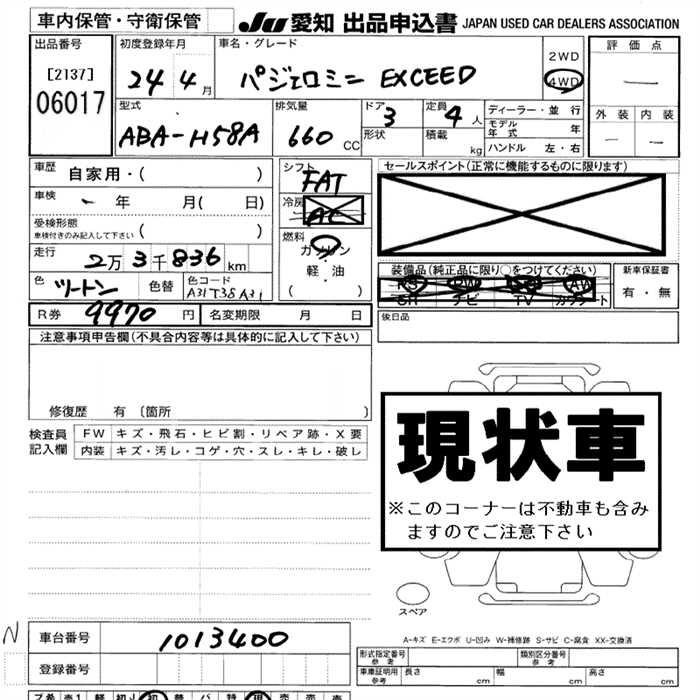 車内保管・守衛保管 JU 愛知 出品申込書 JAPAN USED CAR DEALERS ASSOCIATION
出品番号 [2137] 06017
初度登録年月 24年 4月
車名・グレード パジェロミニ EXCEED
2WD
4WD
評価点 —
外装 内装
— —
型式 ABA-H58A
排気量 660 CC
ドア 3
形状
定員 4人
積載 kg
ディーラー・並行
モデル年式 年
ハンドル 左・右
車歴 自家用・( )
車検 - 年 月( 日)
受検形態
車検付きのみ記入して下さい ( )
走行 2万 3千 836 km
色 ツートン 色替 色コード A31T38A31
R券 9970 円 名変期限 月 日
シフト FAT
冷房 AC
燃料 ガソリン
軽・油
( )
セールスポイント(正常に機能するものに限ります)
装備品(純正品に限り○をつけてください)
PS PW SR AW
SH ナビ TV カワシート
新車保証書
有・無
後日品
注意事項申告欄(不具合内容等は具体的に記入して下さい)
修復歴 有 〔箇所 〕
検査員記入欄
FW キズ・飛石・ヒビ割・リペア跡・X要
内装 キズ・汚レ・コゲ・穴・スレ・キレ・破レ
現状車
※このコーナーは不動車も含み
ますのでご注意下さい
スペア
A-キズ E-エクボ U-凹み W-補修跡 S-サビ C-腐食 XX-交換済
N
車台番号 1013400
登録番号
形式指定番号 参考
類別区分番号 参考
車庫証明用 参考 長さ cm 幅 cm 高さ cm